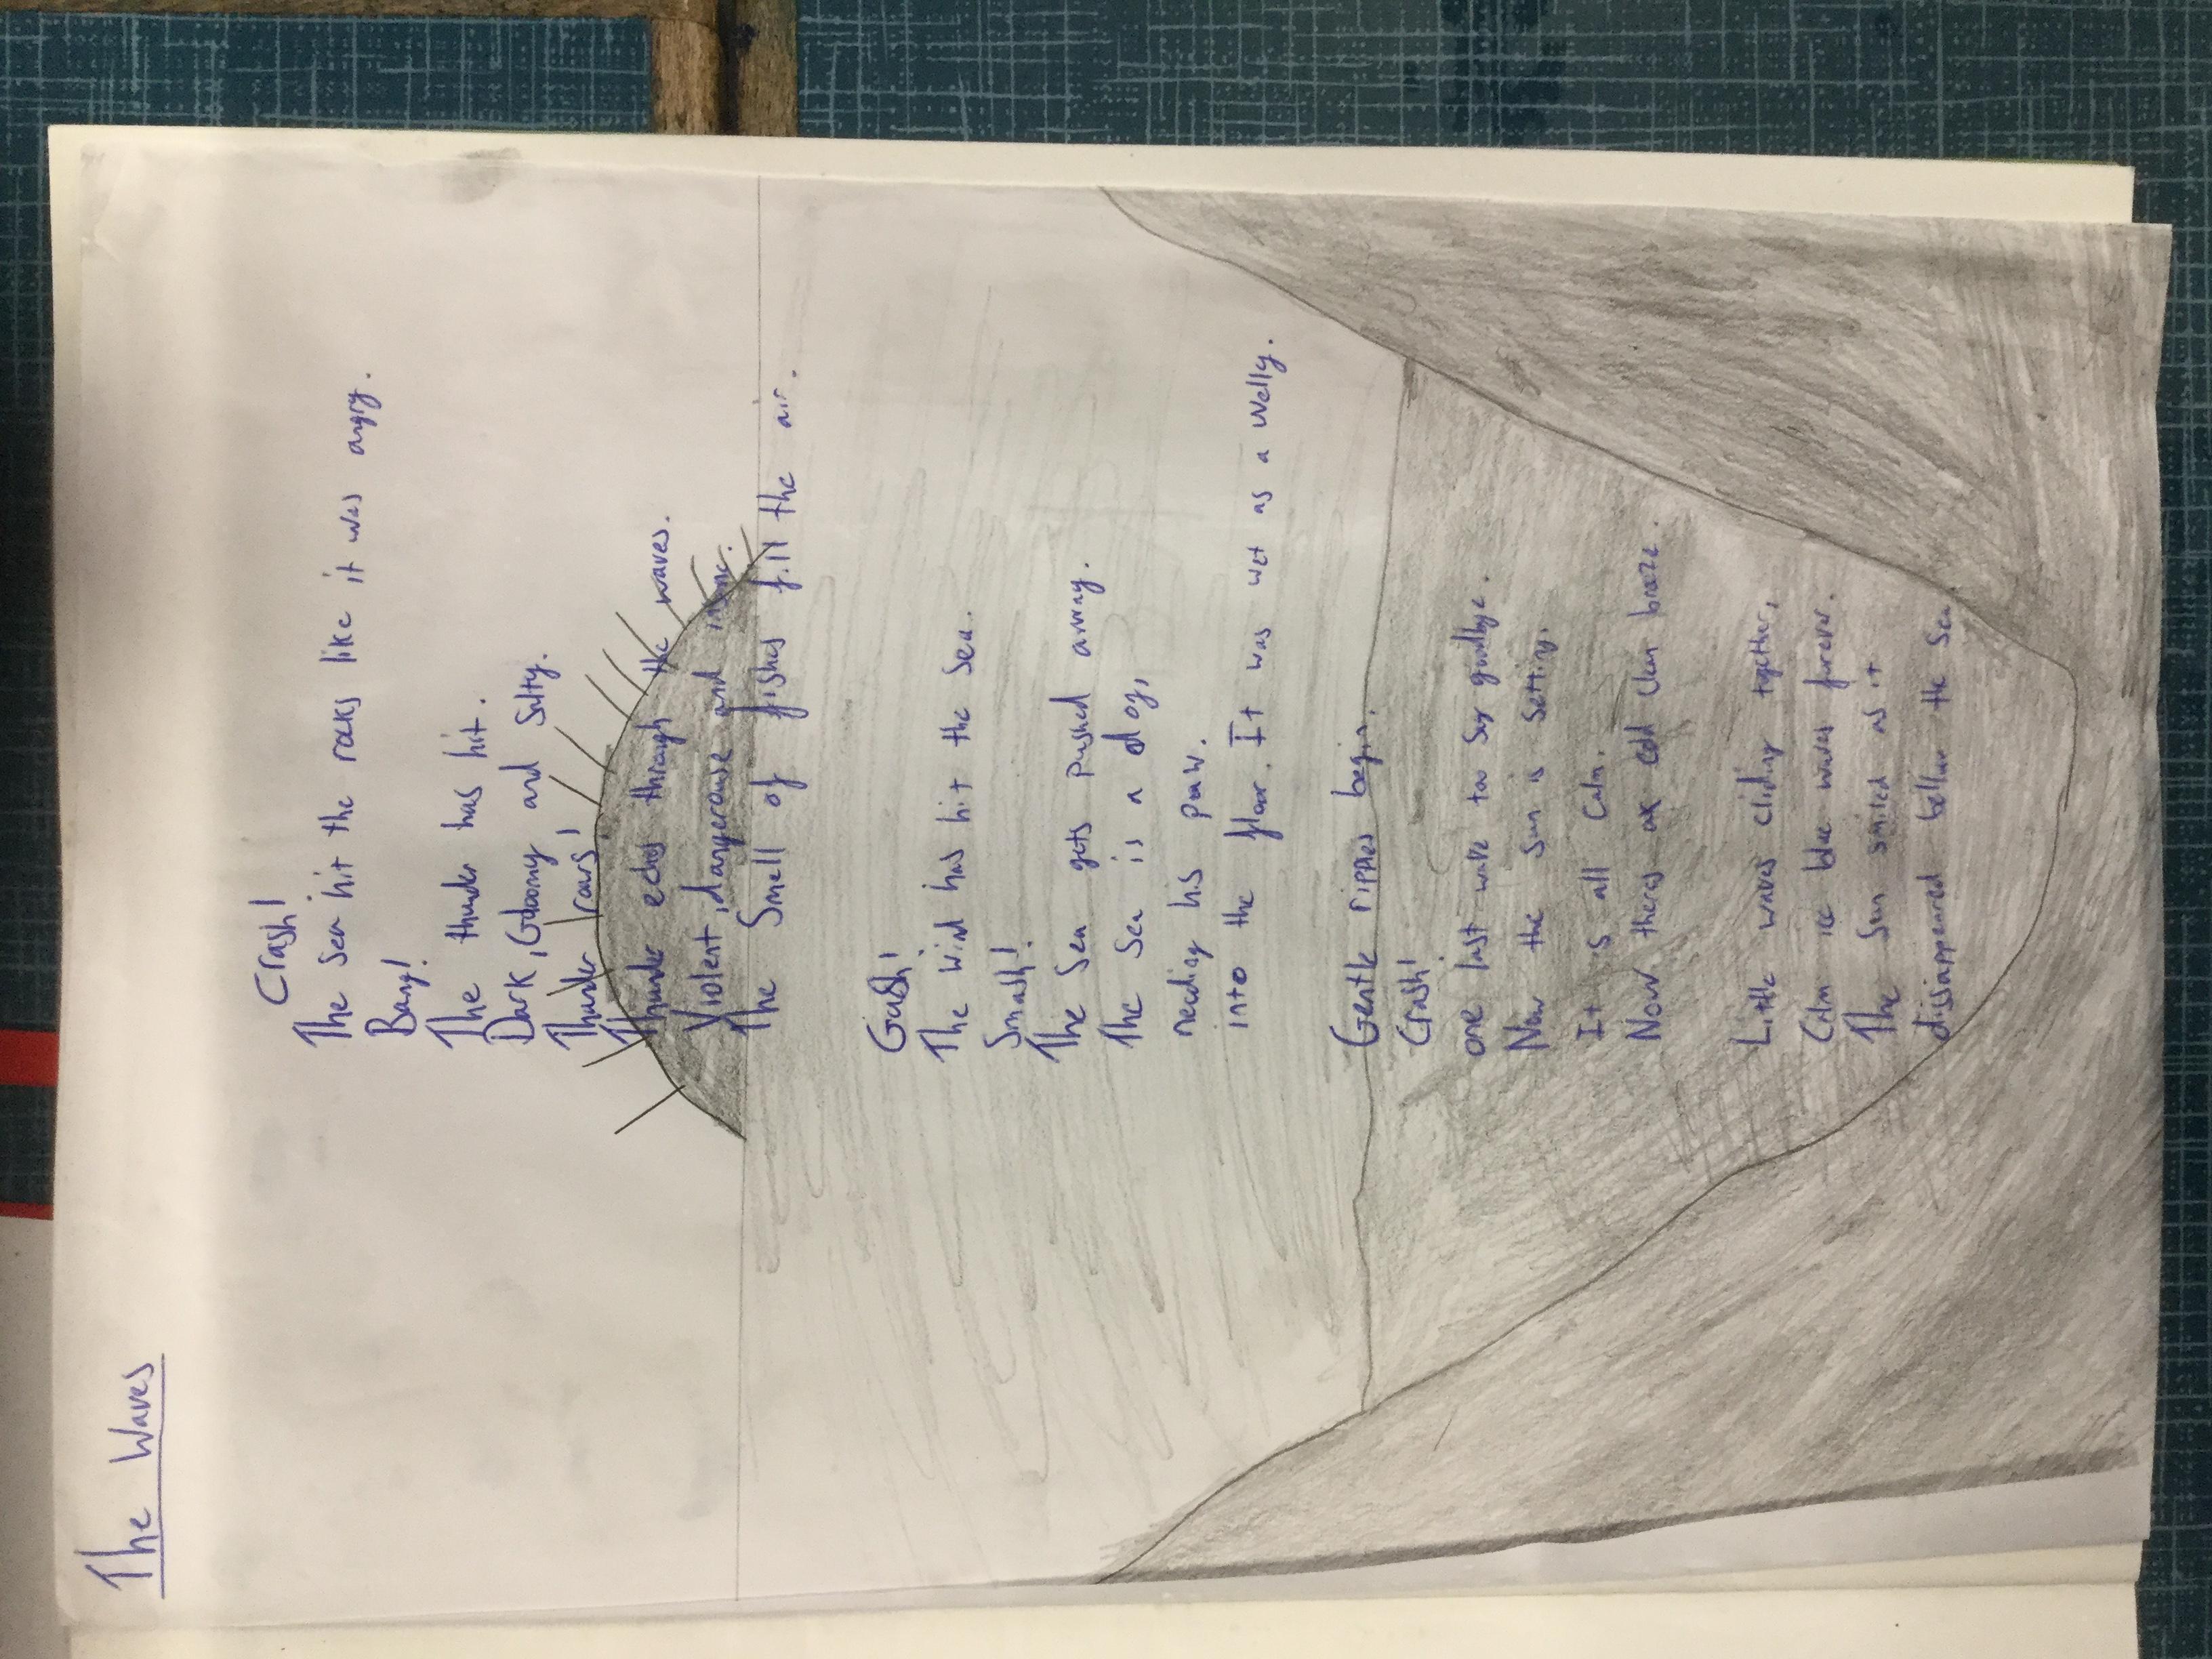 The Waves
Crash!
The Sea hit the rocks like it was angry.
Bang!
The thunder has hit.
Dark, Gloomy and Salty.
Thunder roars!
Thunder echos through the waves.
Violent, dangerouse and
The Smell of fishes fill the air.
Gush!
The wind has hit the Sea.
Smash!
The Sea gets pushed away.
The Sea is a dog,
needing his paw.
into the floor. It was wet as a welly.
Gentle ripples begin.
Crash!
one last wave to say goodbye.
Now the Sun is Setting.
It is all Calm.
Now theres a cold clear breeze.
Little waves cliding together,
Calm ice blue waves forever.
The Sun smiled as it
dissappeared bellow the Sea